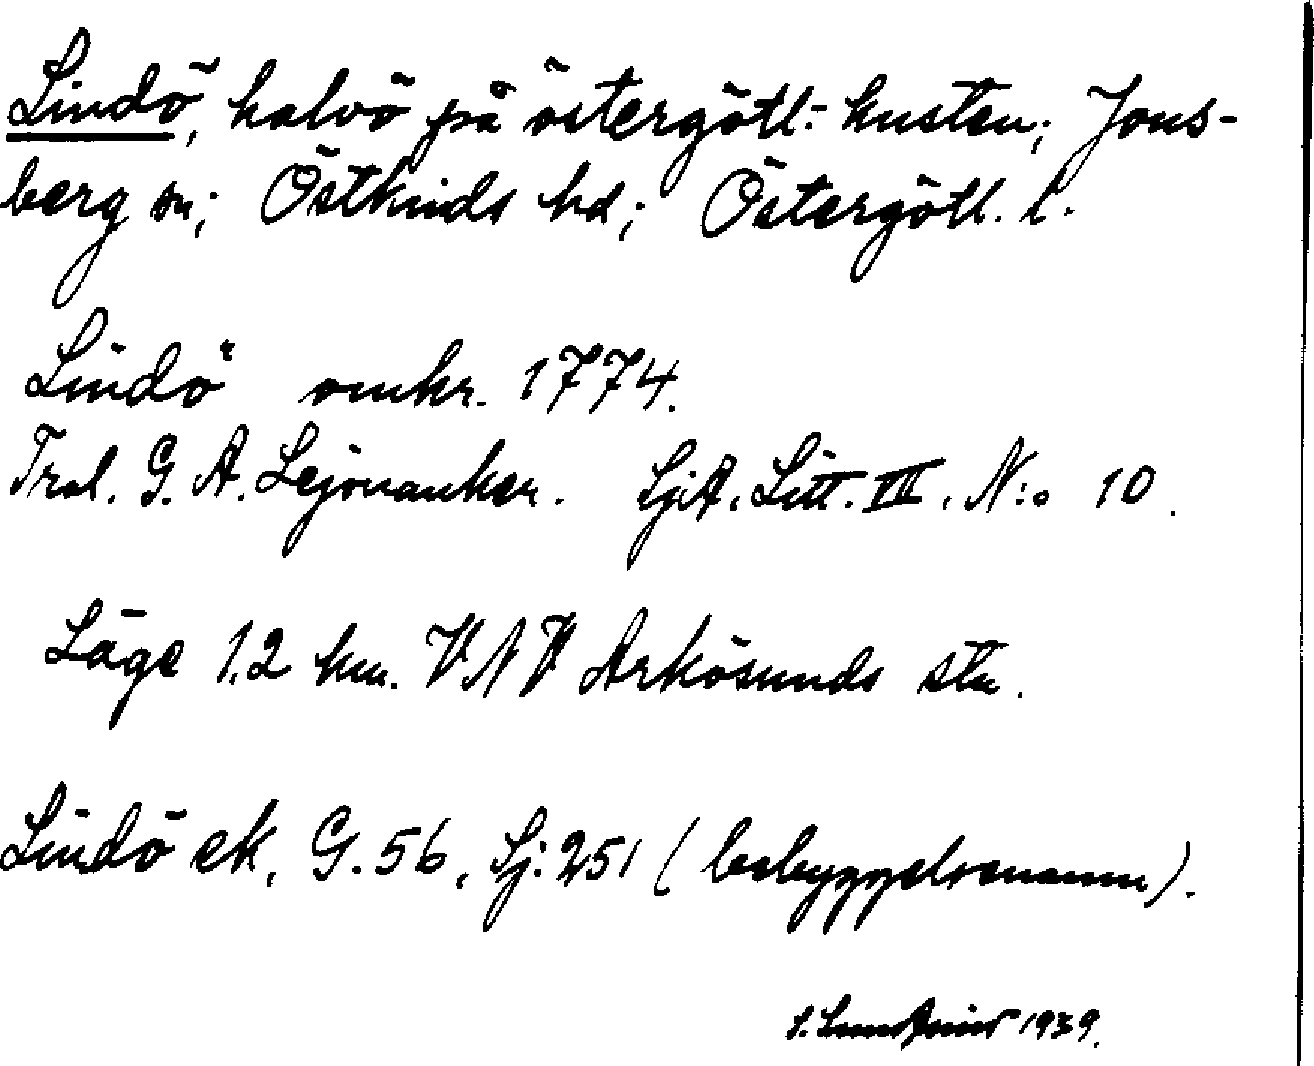 Lindö, halvö på östergötl. kusten; Jons-
berg sn; Östkinds hd; Östergötl. l.
Lindö omkr. 1774.
Trol. G. A. Lejonanker. SjA. Litt. III. N:o 10.
Läge 1.2 km. VNV Arkösunds stn.
Lindö ek. G. 56, Sj. 251 (bebyggelsenamn).
1939.